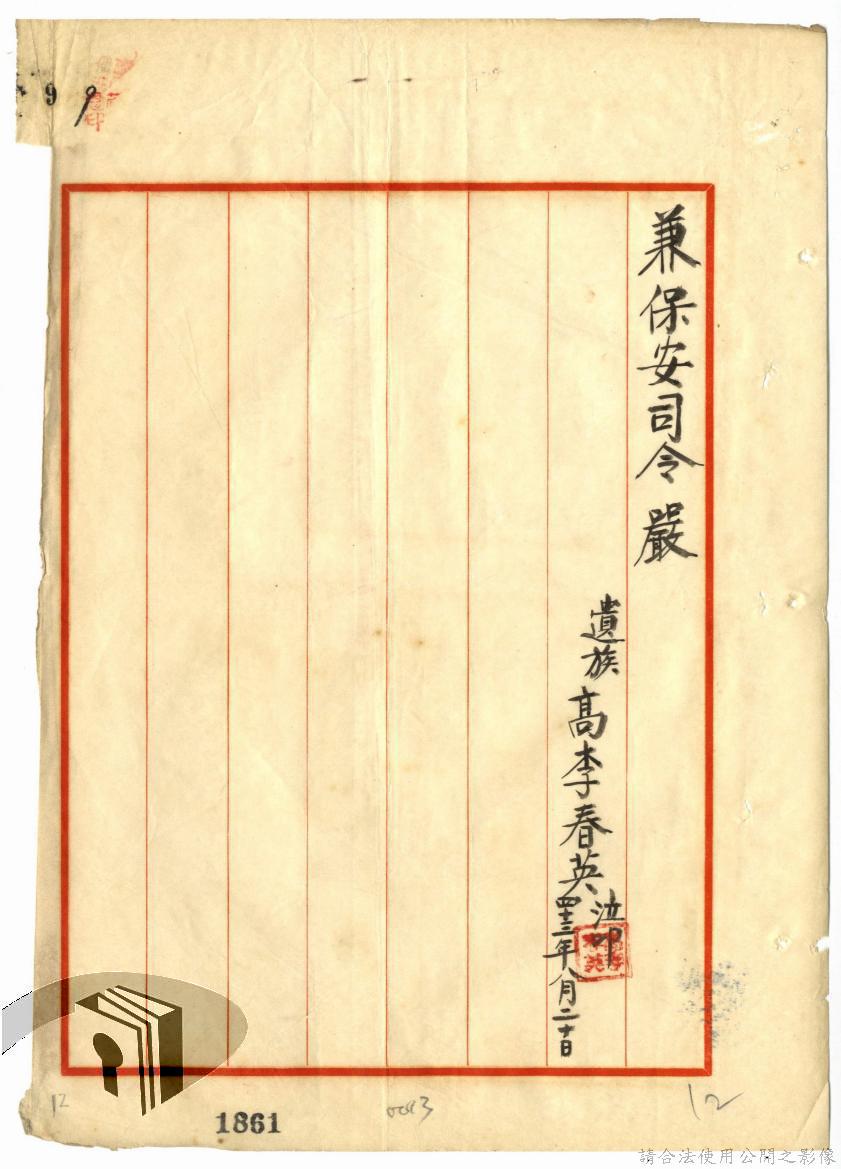 兼保安司令 嚴
遺族 高李春英 泣叩
四十三年八月二十日
9 9
12
1861
0013
12
請合法使用公開之影像